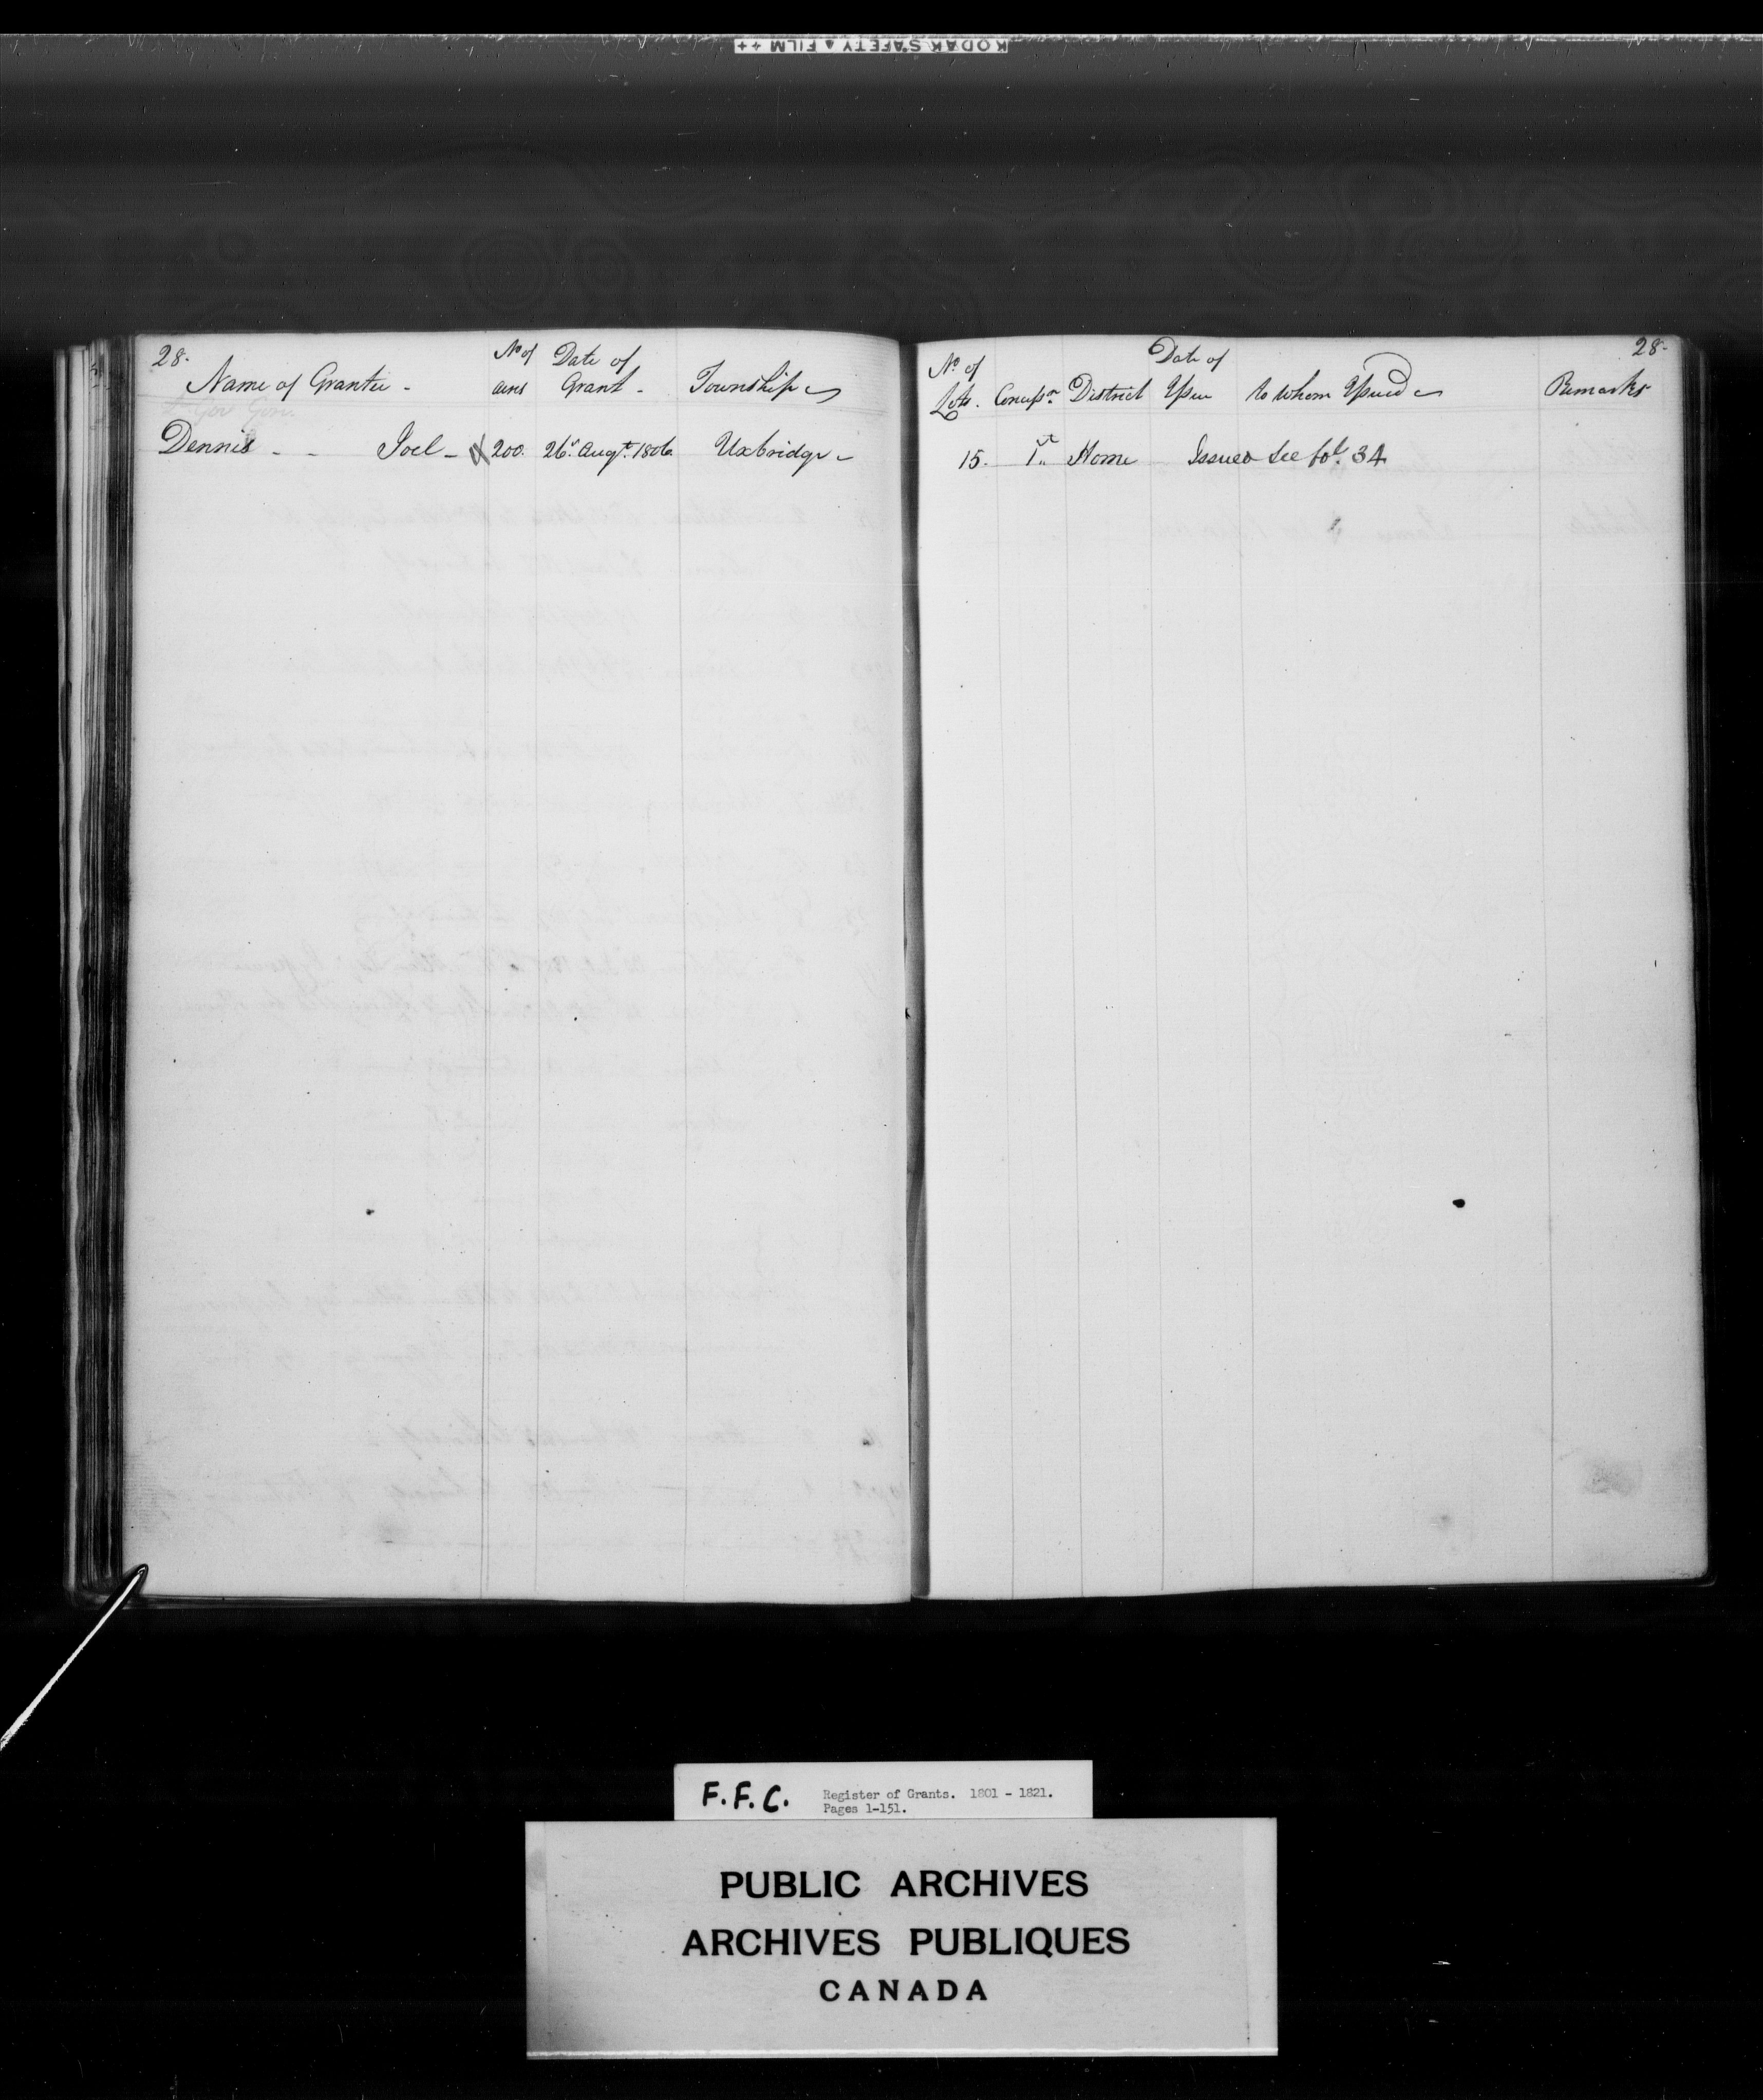 KODAK SAFETY ▲ FILM ++
28.
Nº of Date of
Name of Grantee - acres Grant - Township
Lt Gov Gore
Dennis - - Joel - X 200. 26th Augt. 1806 Uxbridge -
28-
Nº of Date of
Lots. Concessn. District Issue to whom Issued Remarks
15. 1st Home Issued See fol. 34
F.F.C. Register of Grants. 1801 - 1821.
Pages 1-151.
PUBLIC ARCHIVES
ARCHIVES PUBLIQUES
CANADA